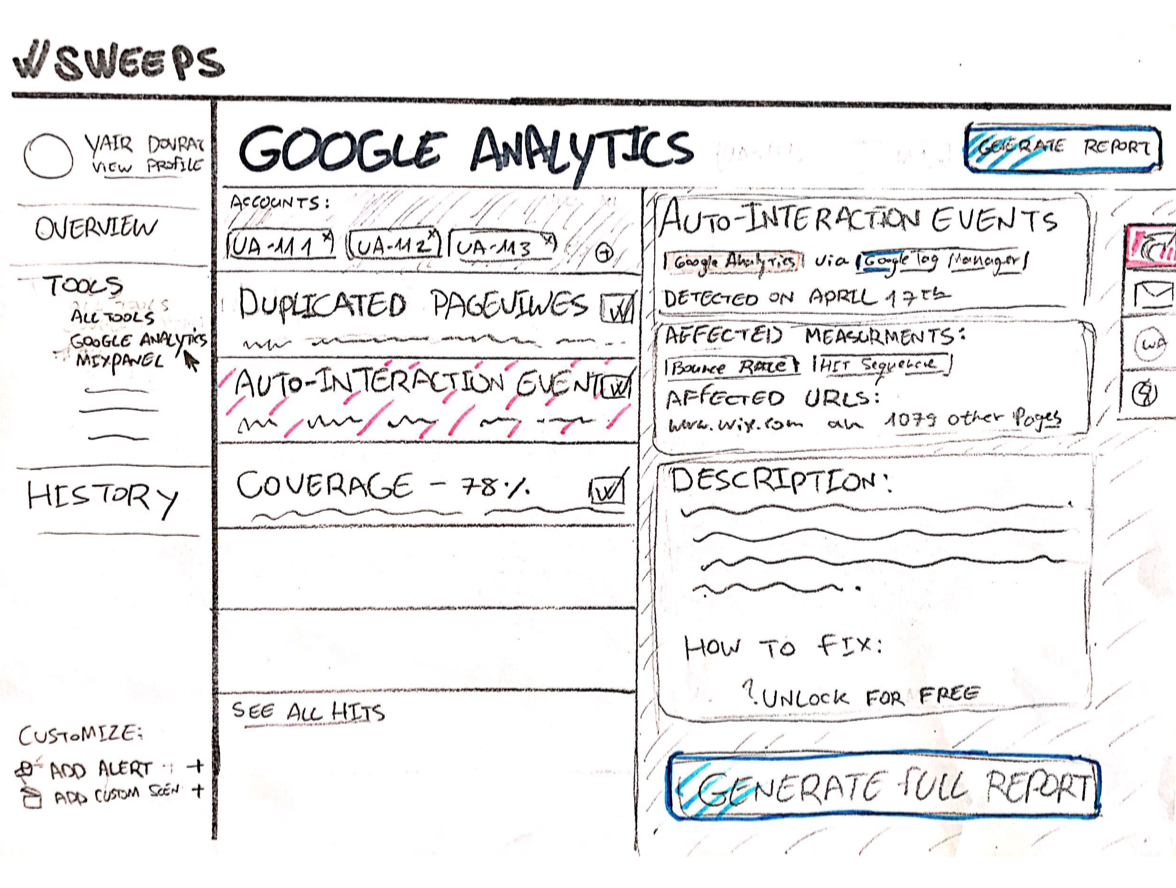 SWEEPS
YAIR DOVRAT
VIEW PROFILE
OVERVIEW
TOOLS
ALL TOOLS
GOOGLE ANALYTICS
MIXPANEL
HISTORY
CUSTOMIZE:
ADD ALERT +
ADD CUSTOM SCEN +
GOOGLE ANALYTICS
GENERATE REPORT
ACCOUNTS:
UA-111 x UA-112 x UA-113 x +
DUPLICATED PAGEVIWES
AUTO-INTERACTION EVENT
COVERAGE - 78%
SEE ALL HITS
AUTO-INTERACTION EVENTS
Google Analytics via Google Tag Manager
DETECTED ON APRIL 17th
AFFECTED MEASURMENTS:
Bounce Rate HIT Sequence
AFFECTED URLS:
www.wix.com an 1079 other Pages
DESCRIPTION:
HOW TO FIX:
? UNLOCK FOR FREE
GENERATE FULL REPORT
WA